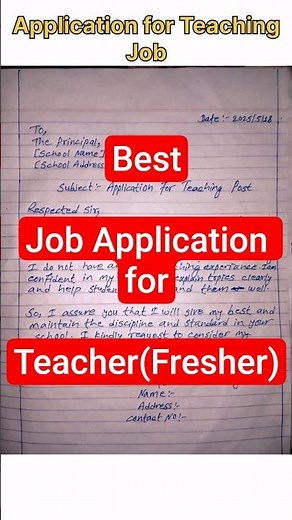 Application for Teaching
Job
Date:- 2025/5/18
To,
The Principal,
[School Name]
[School Address
Subject:- Application for Teaching Post
Respected Sir,
Best
Job Application
for
Teacher(Fresher)
I do not have experience I am
confident in my explain topics clearly
and help and them well.
So, I assure you that I will give my best and
maintain the discipline and standard in your
school. I kindly request to consider my
Name:-
Address:-
Contact No!-